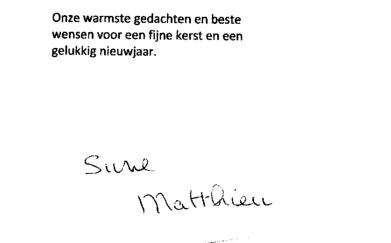 Onze warmste gedachten en beste
wensen voor een fijne kerst en een
gelukkig nieuwjaar.
Matthieu